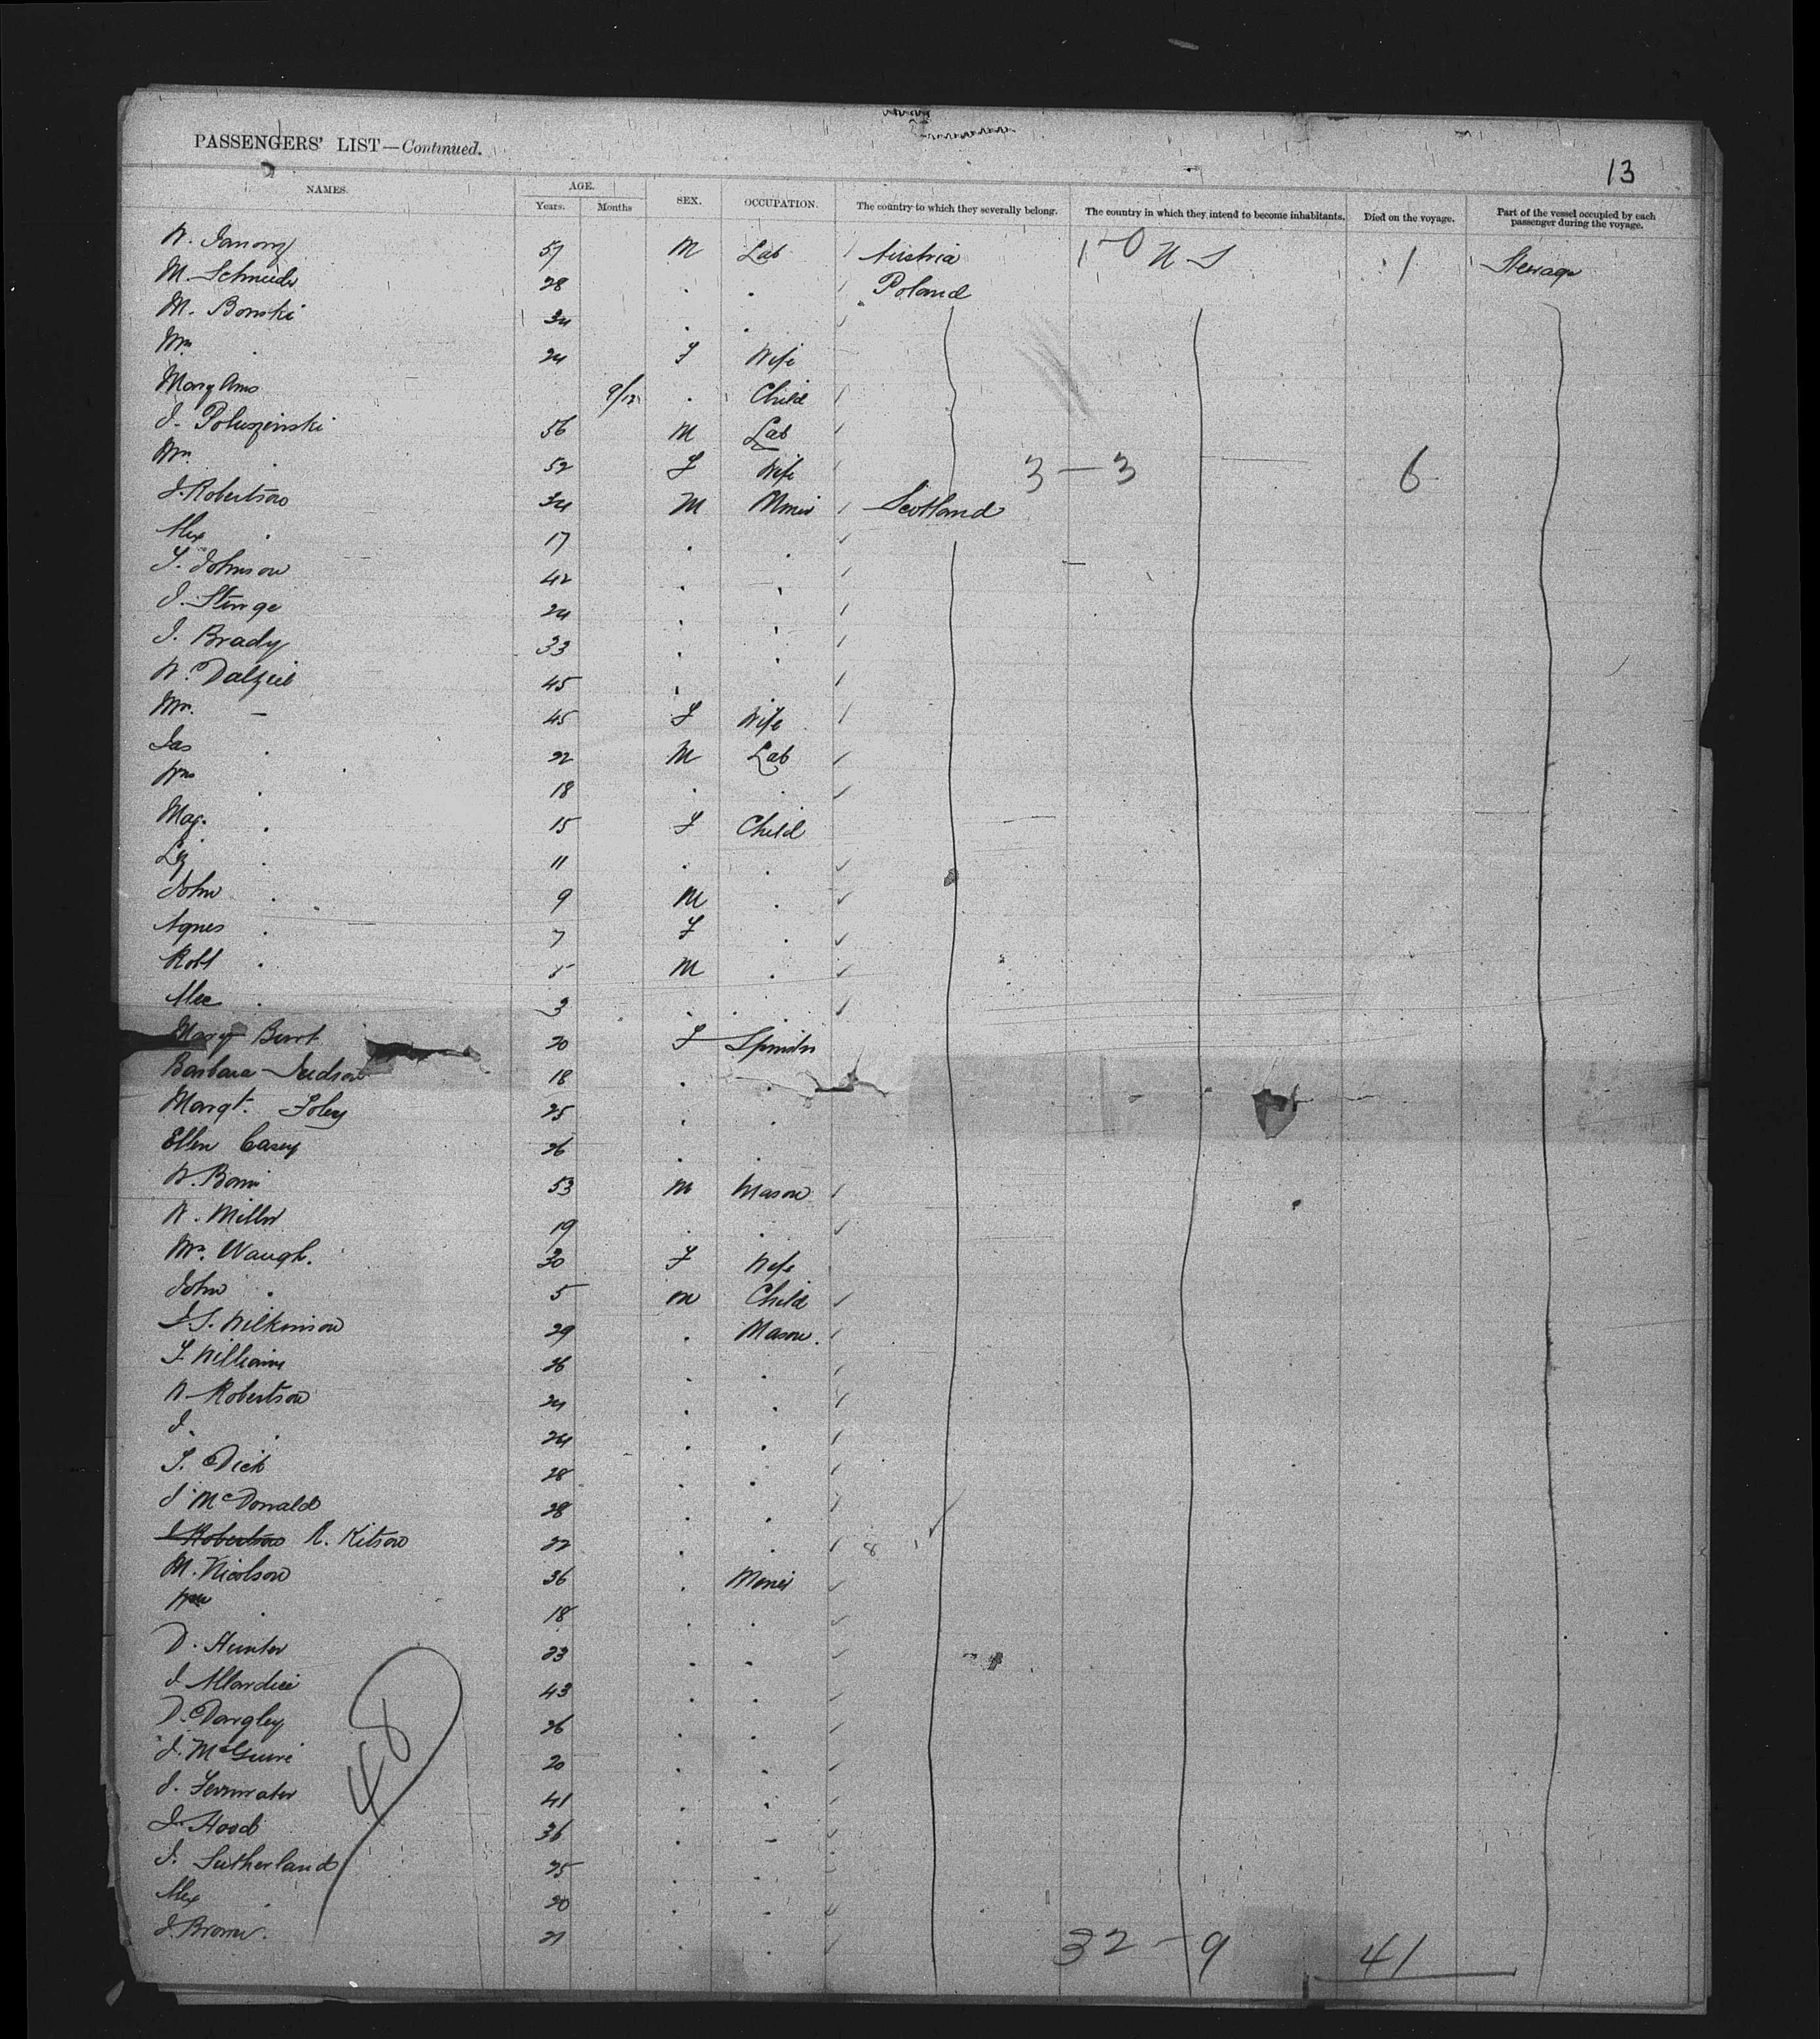 PASSENGERS' LIST—Continued.
13
NAMES. AGE. Years. Months SEX. OCCUPATION. The country to which they severally belong. The country in which they intend to become inhabitants. Died on the voyage. Part of the vessel occupied by each passenger during the voyage.
W. 57 M Lab Austria 1-0 U S 1 Steerage
M. Schneider 28 . . Poland
M. Bonski 34 . .
Mrs . 24 F Wife
Mary Ann 9/12 . Child
J. Poluszinski 56 M Lab
Mrs. . 52 F Wife 3-3 6
J. Robertson 34 M Miner Scotland
Alex . 17 . .
T. Johnson 42 . .
J. 24 . .
J. Brady 33 . .
W. Dalziel 45 .
Mrs. - 45 F Wife
Jas . 22 M Lab
Wm . 18 . .
Mag. . 15 F Child
Liz . 11 . .
John . 9 M .
Agnes . 7 F .
Robt . 5 M .
Alec . 3 . .
Mary Burt 20 F Spinster
Barbara Judson 18 . .
Margt. Foley 25 . .
Ellen Casey 26 . .
W. 53 M Mason
W. Miller 19 . .
Mrs. Waugh. 30 F Wife
John . 5 M Child
J.S. Wilkinson 29 . Mason.
T. Williams 26 . .
W. Robertson 24 . .
J. . 24 . .
T. Dick 28 . .
J McDonald 28 . .
J Robertson R. Kitson 22 . . 8
M. Nicolson 36 . Miner
Wm . 18 . .
D. Hunter 23 . .
J. Allardice 43 . .
D. Dangley 26 . .
J. McGuire 20 . .
J. 41 . .
J. Hood 36 . -
J. Sutherland 25 . .
Alex . 20 . -
J. Brown. 21 . .
48
32-9 41